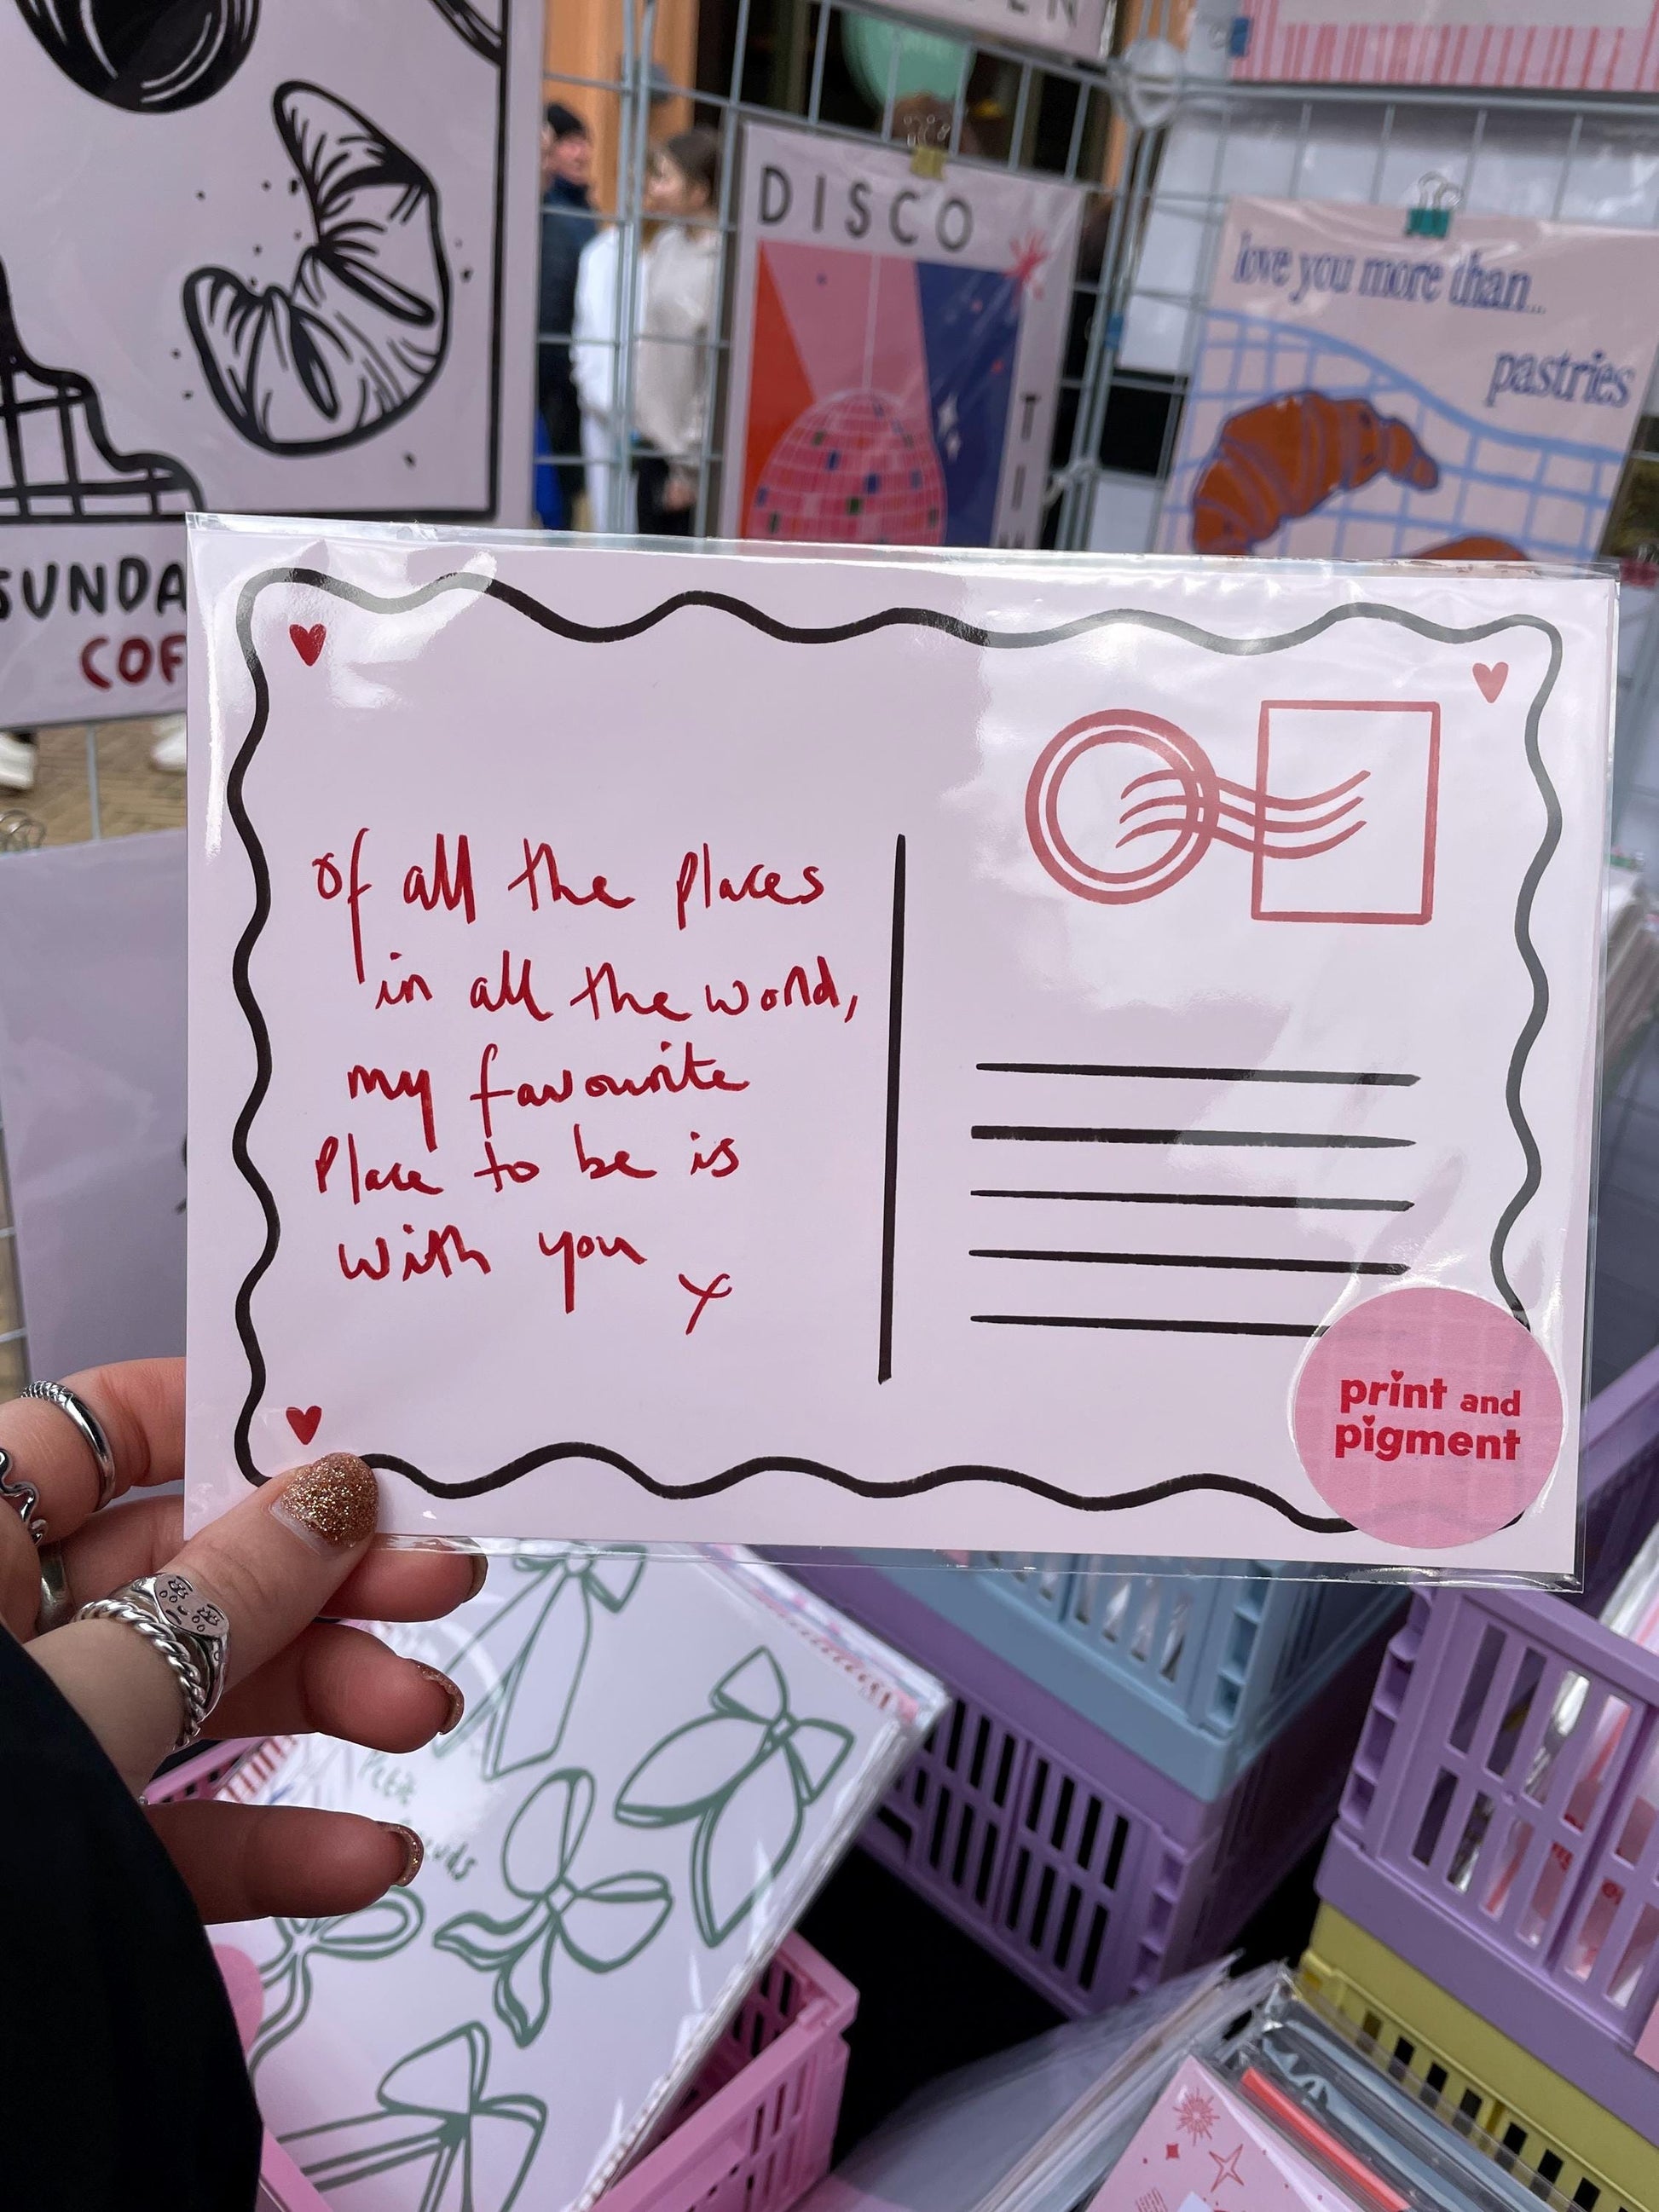 DISCO
TIM
love you more than...
pastries
SUNDA
COF
of all the places
in all the world,
my favourite
Place to be is
with you x
print and
pigment
Petit